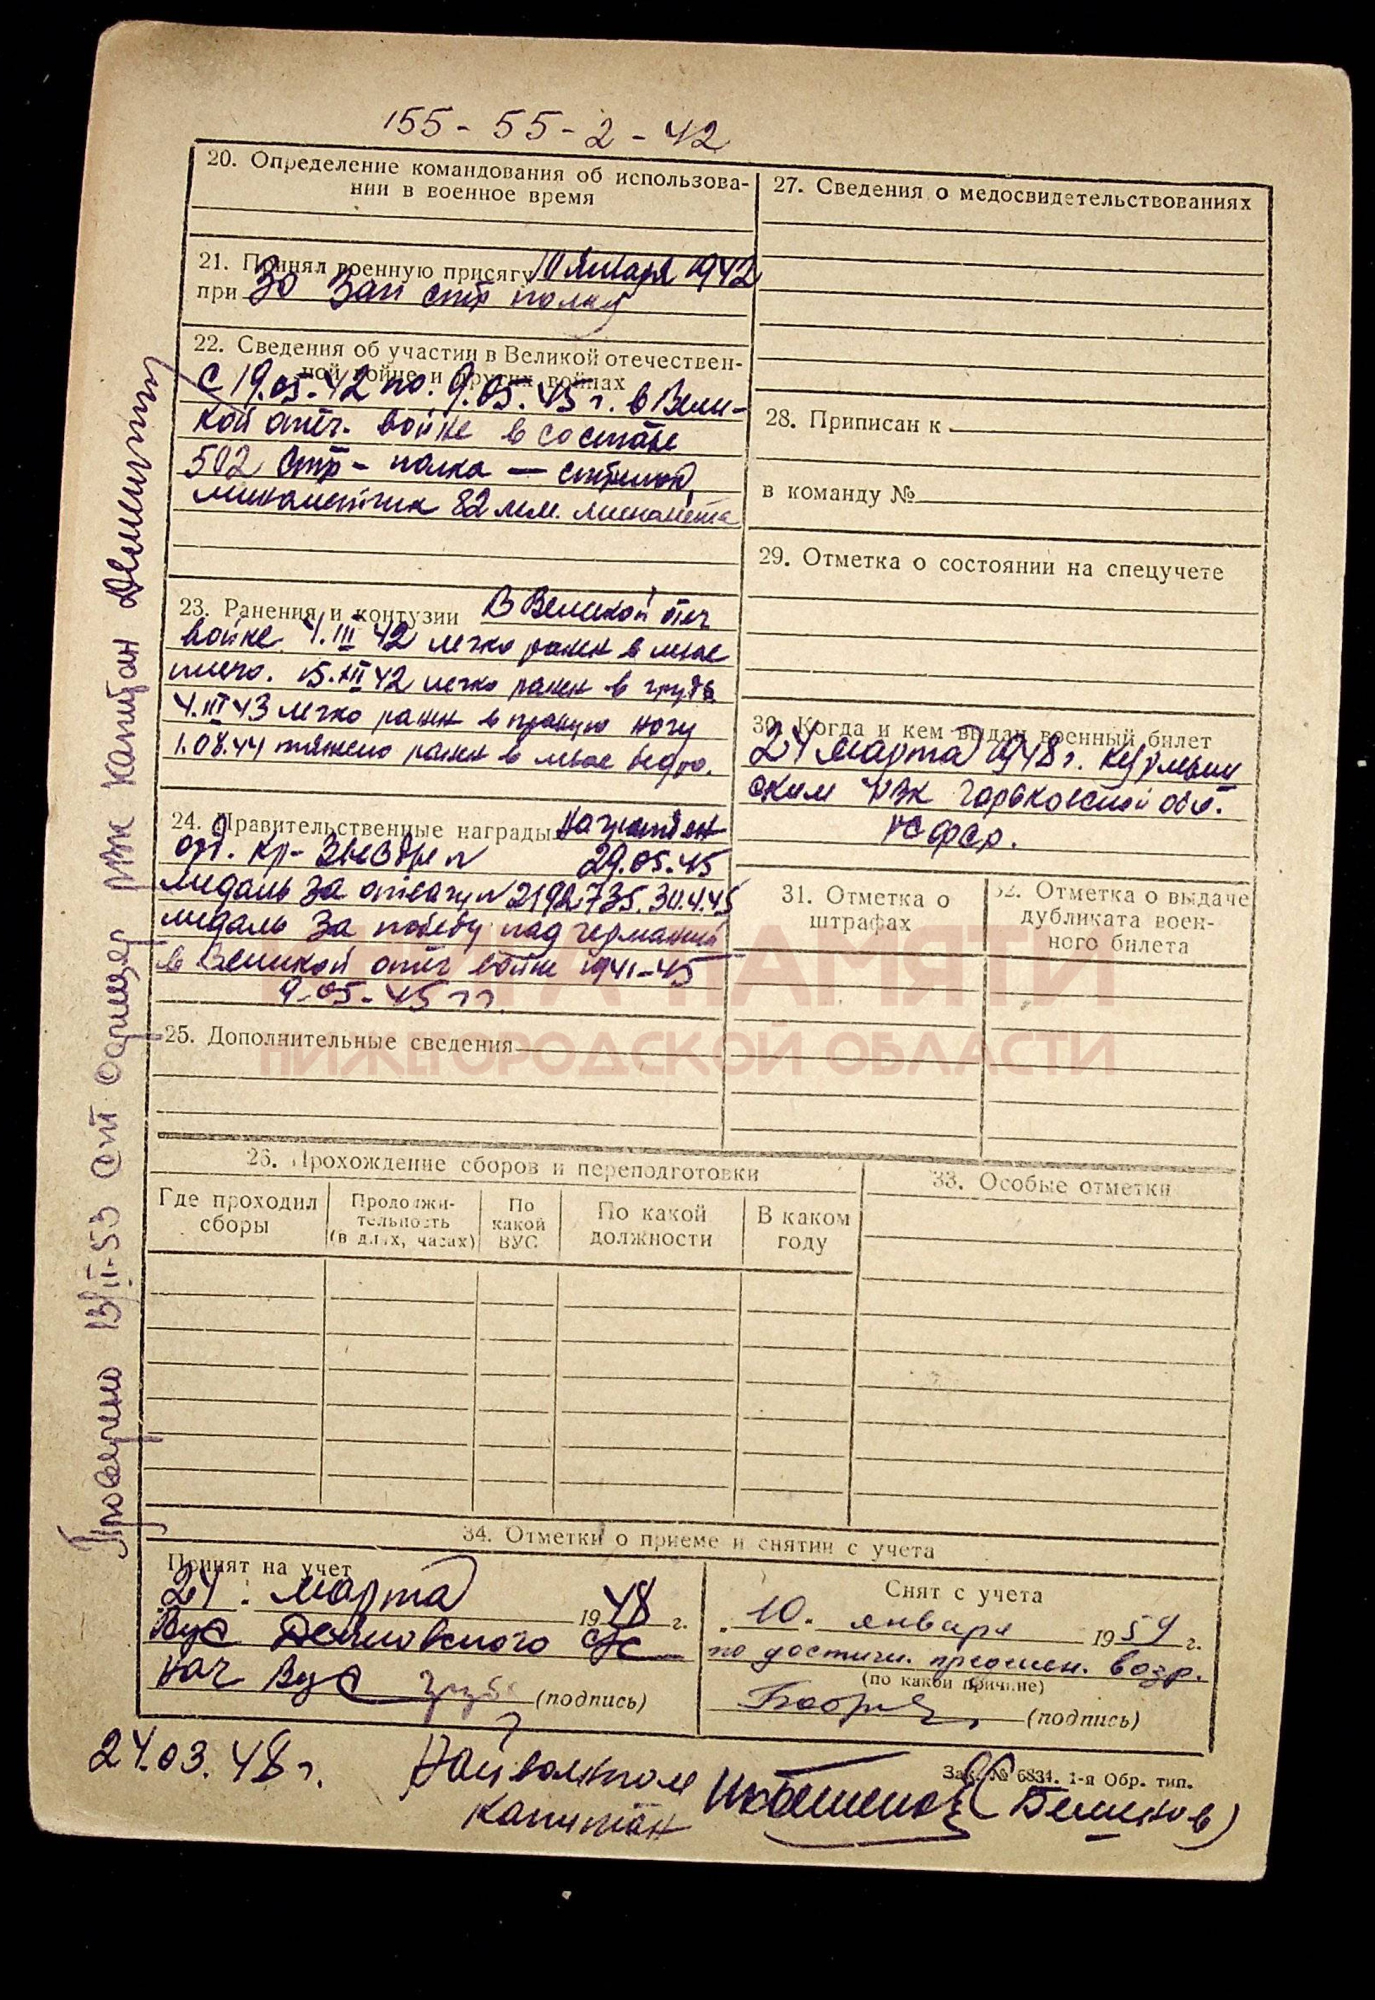 155-55-2-42
20. Определение командования об использова-
нии в военное время
21. Принял военную присягу 10 января 1942
при 30 Зап стр полку
22. Сведения об участии в Великой отечествен-
ной войне и других войнах
С 19.05.42 по. 9.05.45 г. в Вели-
кой отеч. войне в составе
502 стр-полка —
минометчик 82 м.м. миномета
23. Ранения и контузии В Великой отеч
войне. 4.III 42 легко ранен в левое
плечо. 15.XII 42 легко ранен в грудь
4.III 43 легко ранен в правую ногу
1.08.44 тяжело ранен в левое бедро.
24. Правительственные награды Награжден
орд. кр-Звезды N 29.05.45
медаль За отвагу N 2192735. 30.4.45
медаль За победу над германией
в Великой отеч войне 1941-45
9.05.45 гг.
25. Дополнительные сведения
26. Прохождение сборов и переподготовки
Где проходил
сборы
Продолжи-
тельность
(в днях, часах)
По
какой
ВУС
По какой
должности
В каком
году
27. Сведения о медосвидетельствованиях
28. Приписан к
в команду №
29. Отметка о состоянии на спецучете
30. Когда и кем выдан военный билет
24 марта 1948 г.
ским РВК Горьковской обл.
РСФСР.
31. Отметка о
штрафах
32. Отметка о выдаче
дубликата воен-
ного билета
33. Особые отметки
КНИГА ПАМЯТИ
НИЖЕГОРОДСКОЙ ОБЛАСТИ
34. Отметки о приеме и снятии с учета
Принят на учет
24. марта 1948 г.
Вус с/с
нач Вус (подпись)
Снят с учета
10. января 1959 г.
по достиж. предельн. возр.
(по какой причине)
(подпись)
24.03.48 г.
капитан
Зак. № 6831. 1-я Обр. тип.
Проверено 13/II-53 ст офицер РВК капитан